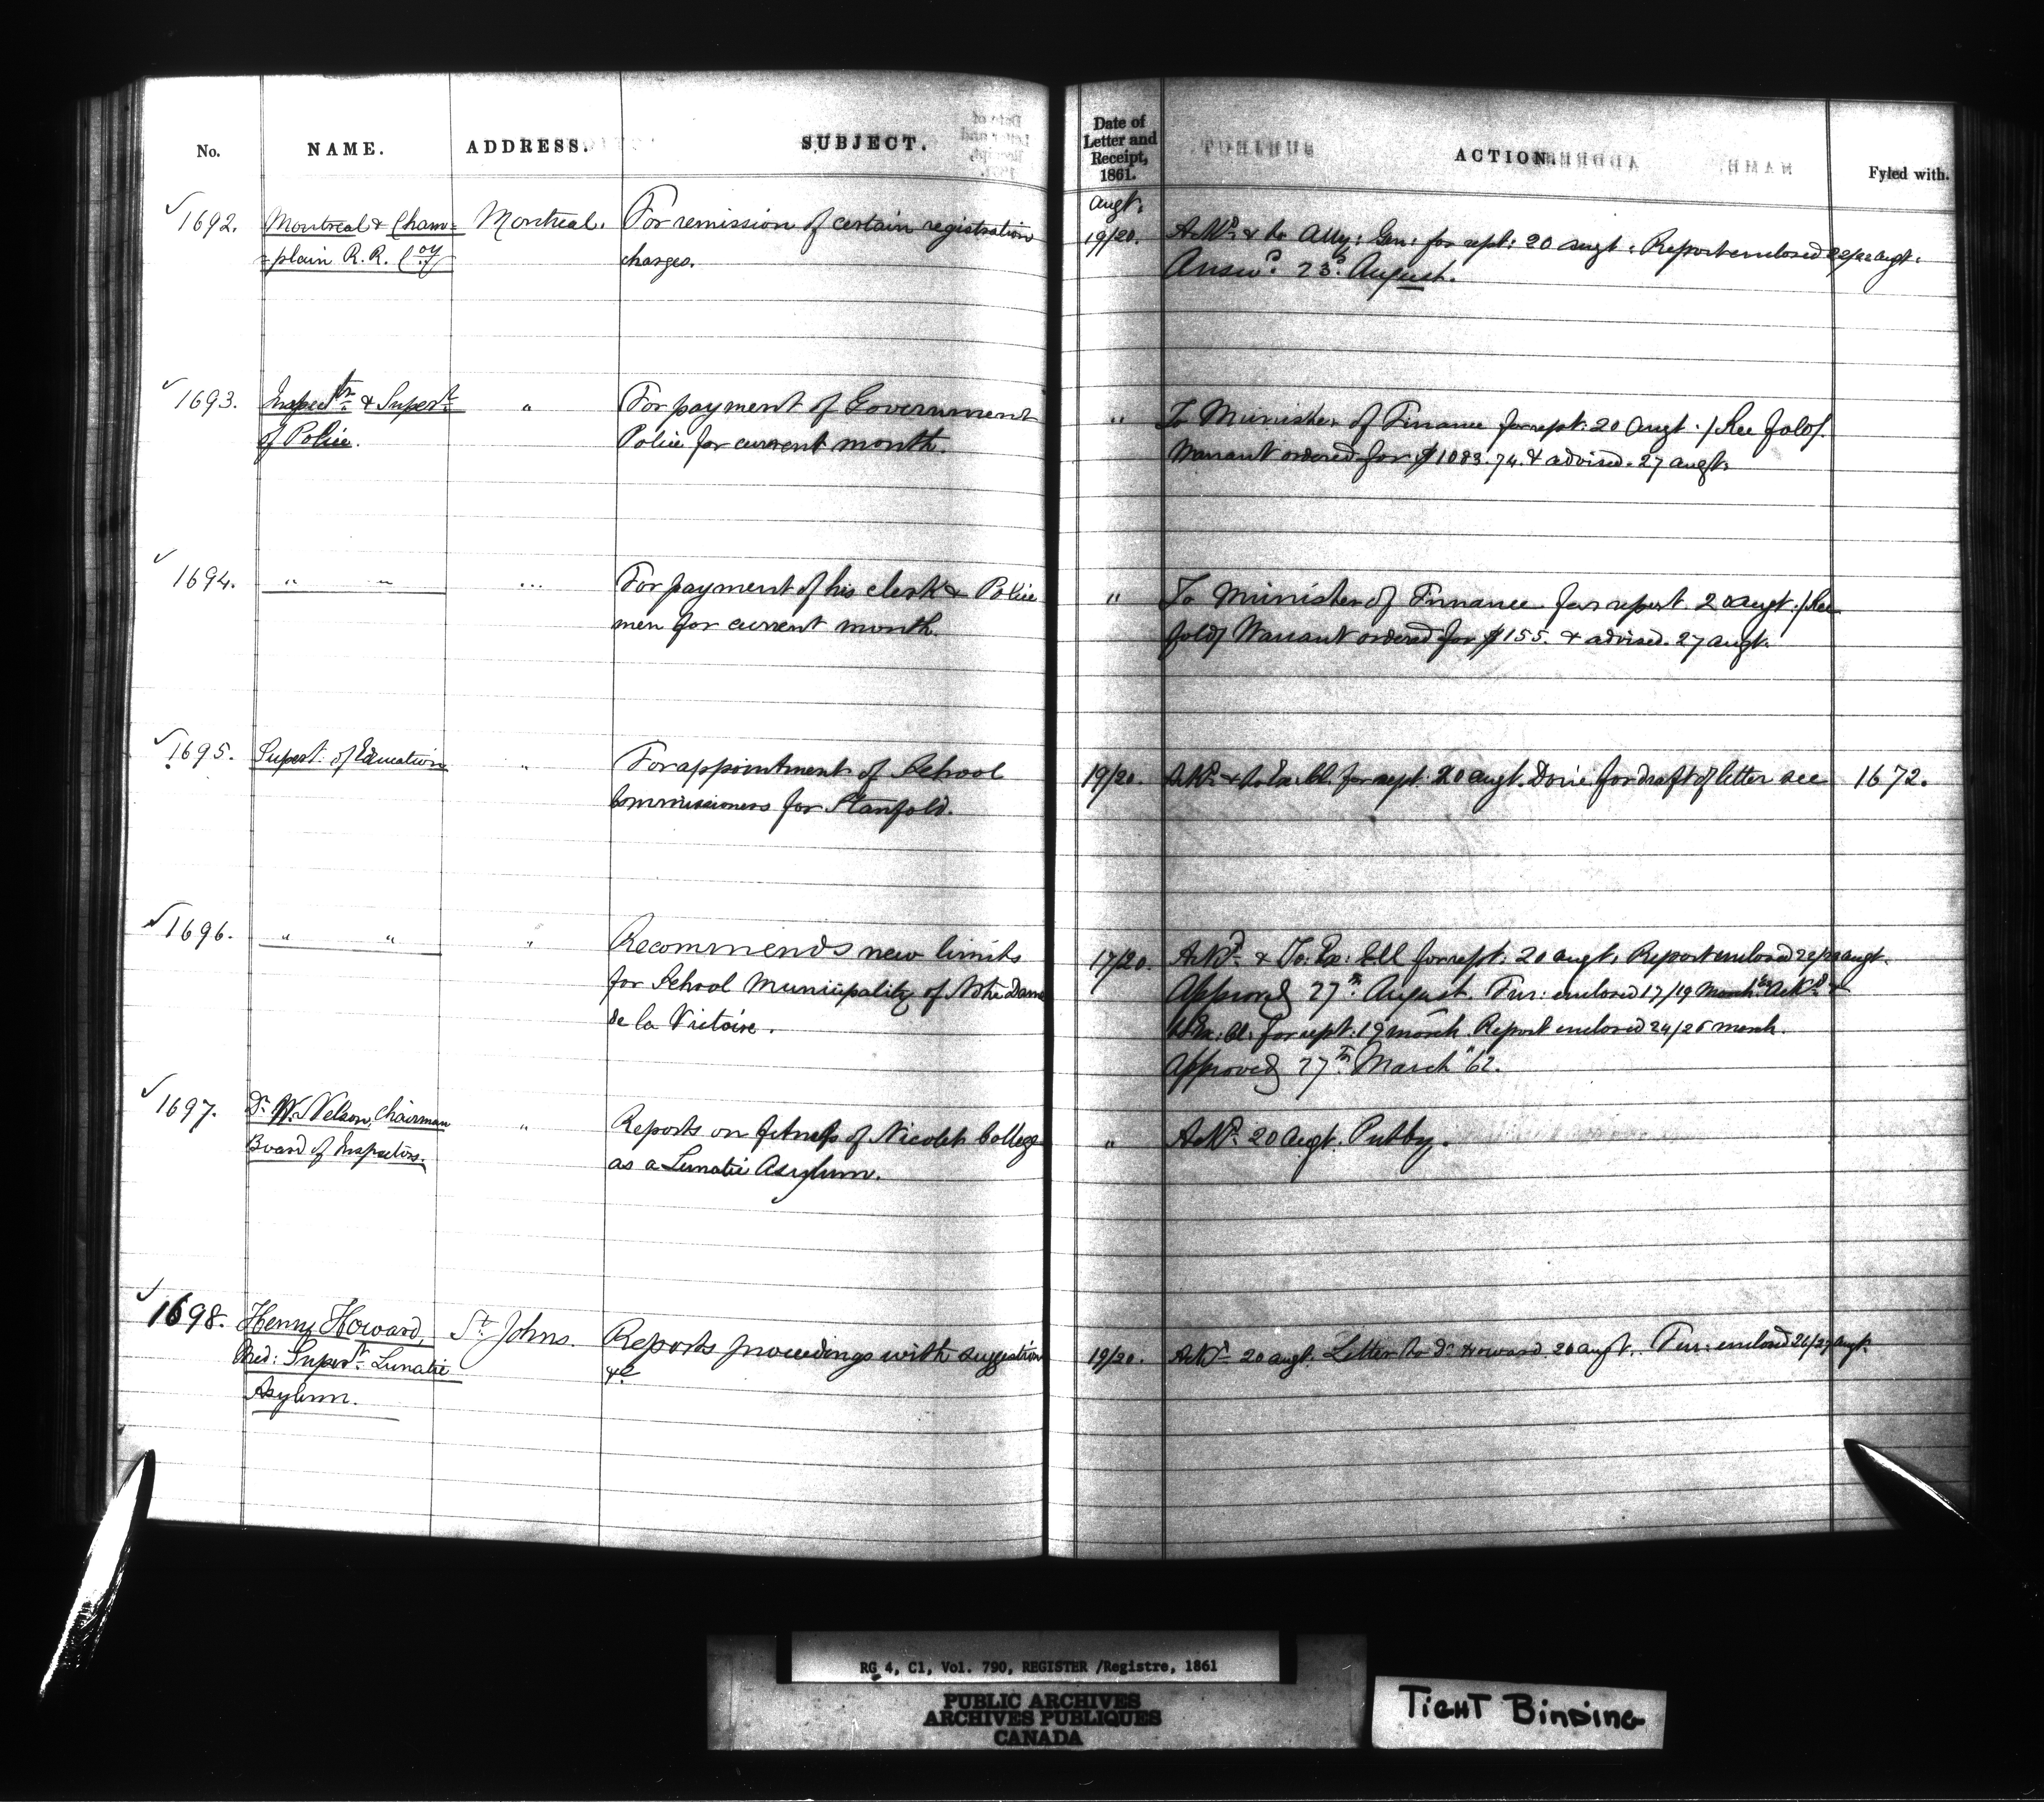 No. NAME. ADDRESS. SUBJECT. Date of Letter and Receipt, 1861. ACTION. Fyled with.
Augt.
1692. Montreal & Cham= Montreal. For remission of certain registration 19/20. Ackd. & to Atty: Gen: for rept: 20 Augt. Report enclosed 22/22 augt.
=plain R. R. Coy charges. Answd. 23d. August.
1693. Inspectr. & Supert. " For payment of Government " To Minister of Finance for rept: 20 Augt. / See fold /.
of Police. Police for current month. Warrant ordered for $1083.74. & advised. 27 augt.
1694. " " " For payment of his clerk & Police " To Minister of Finance for report. 20 augt. / See
men for current month. fold / Warrant ordered for $155. & advised. 27 augt.
1695. Supert. of Education " For appointment of School 19/20. Ackd. & to Ex. Cl. for rept. 20 augt. Done for draft of letter see 1672.
Commissioners for Stanfold.
1696. " " " Recommends new limits 17/20. Ackd. & To: Ex: Cll for rept: 20 augt. Report enclosed 22/22 augt.
for School Municipality of Notre Dame Approved 27th. August. Fur: enclosed 17/19 March Ackd. &
de la Victoire. to Ex: Cl. for rept: 19 March. Report enclosed 24/26 March.
Approved 27th March '62.
1697. Dr. W. Nelson, Chairman " Reports on fitness of Nicolet College " Ackd. 20 augt.
Board of Inspectors. as a Lunatic Asylum.
1698. Henry Howard, St. Johns. Reports proceedings with suggestion 19/20. Ackd. 20 augt. Letter to Dr. Howard. 20 augt. Fur: enclosed 26/27 augt.
Med: Supert. Lunatic &c
Asylum.
RG 4, C1, Vol. 790, REGISTER /Registre, 1861
PUBLIC ARCHIVES
ARCHIVES PUBLIQUES
CANADA
TIGHT BINDING